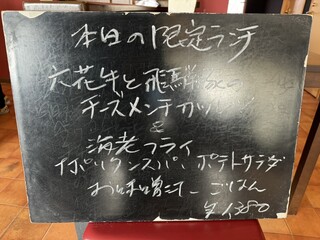 本日の限定ランチ
六花牛と飛騨
チーズメンチカツ
&
海老フライ
ナポリタンスパ、ポテトサラダ
お味噌汁、ごはん
¥1380